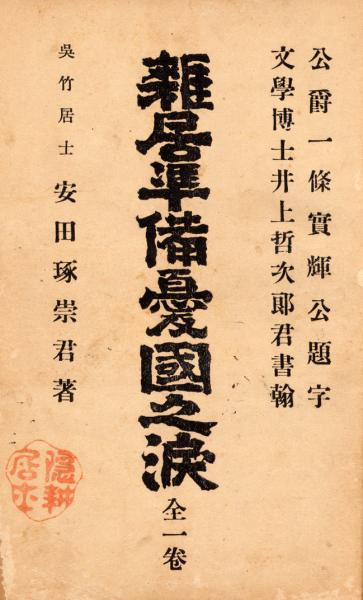 公爵一條實輝公題字
文學博士井上哲次郎君書翰
雜居準備憂國之淚
全一卷
吳竹居士 安田琢崇君著